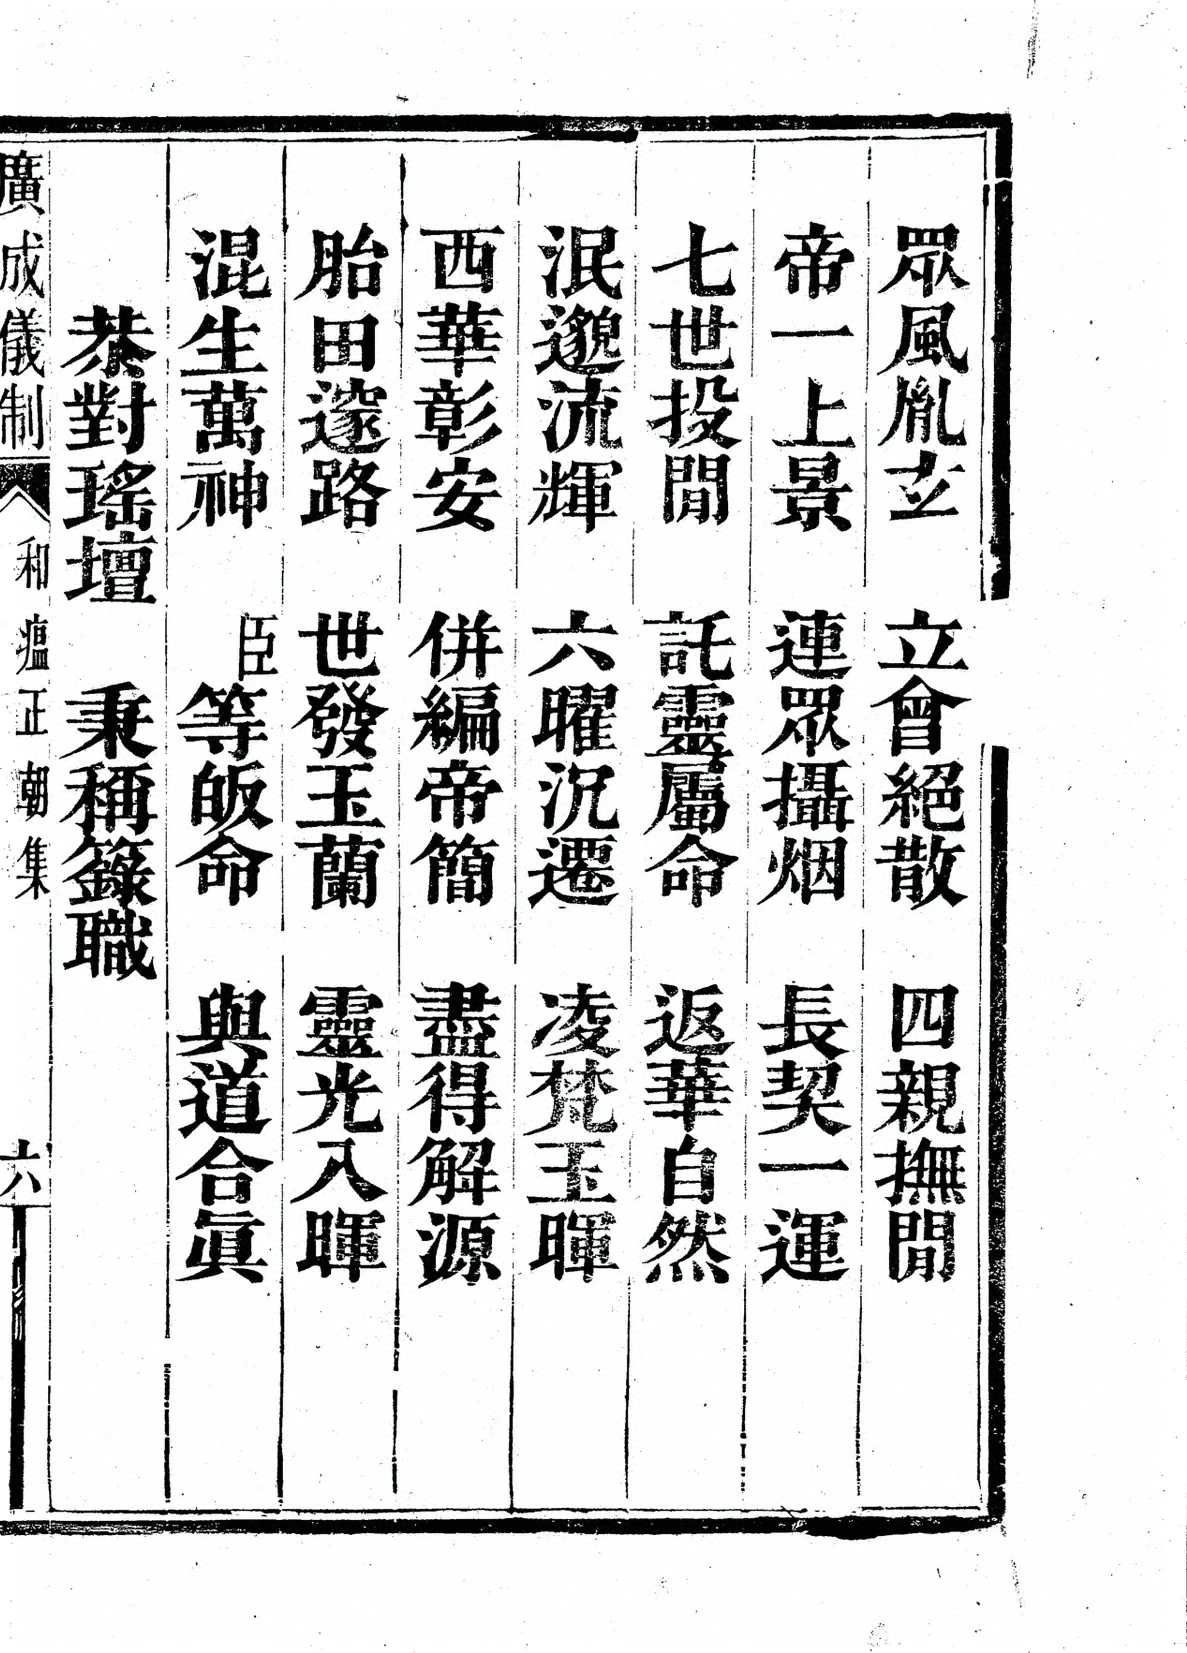 眾風胤玄　立會絕散　四親撫閒
帝一上景　連眾攝烟　長契一運
七世投閒　託靈屬命　返華自然
泯邈流輝　六曜沉遷　凌梵玉暉
西華彰安　併編帝簡　盡得解源
胎田邃路　世發玉蘭　靈光入暉
混生萬神　臣等皈命　與道合眞
恭對瑤壇　秉稱籙職
廣成儀制　和瘟正朝集　六